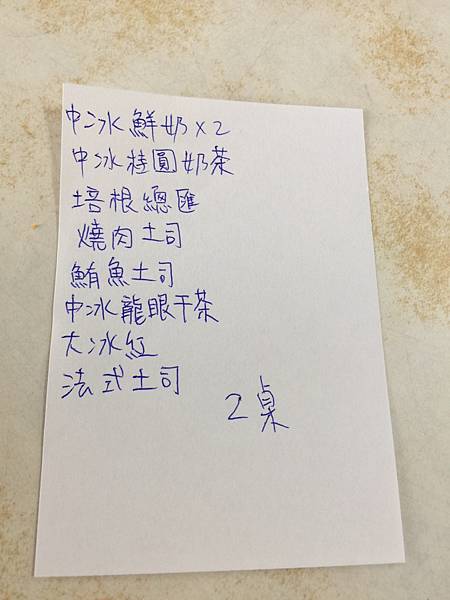 中冰鮮奶x2
中冰桂圓奶茶
培根總匯
燒肉土司
鮪魚土司
中冰龍眼干茶
大冰紅
法式土司
2桌